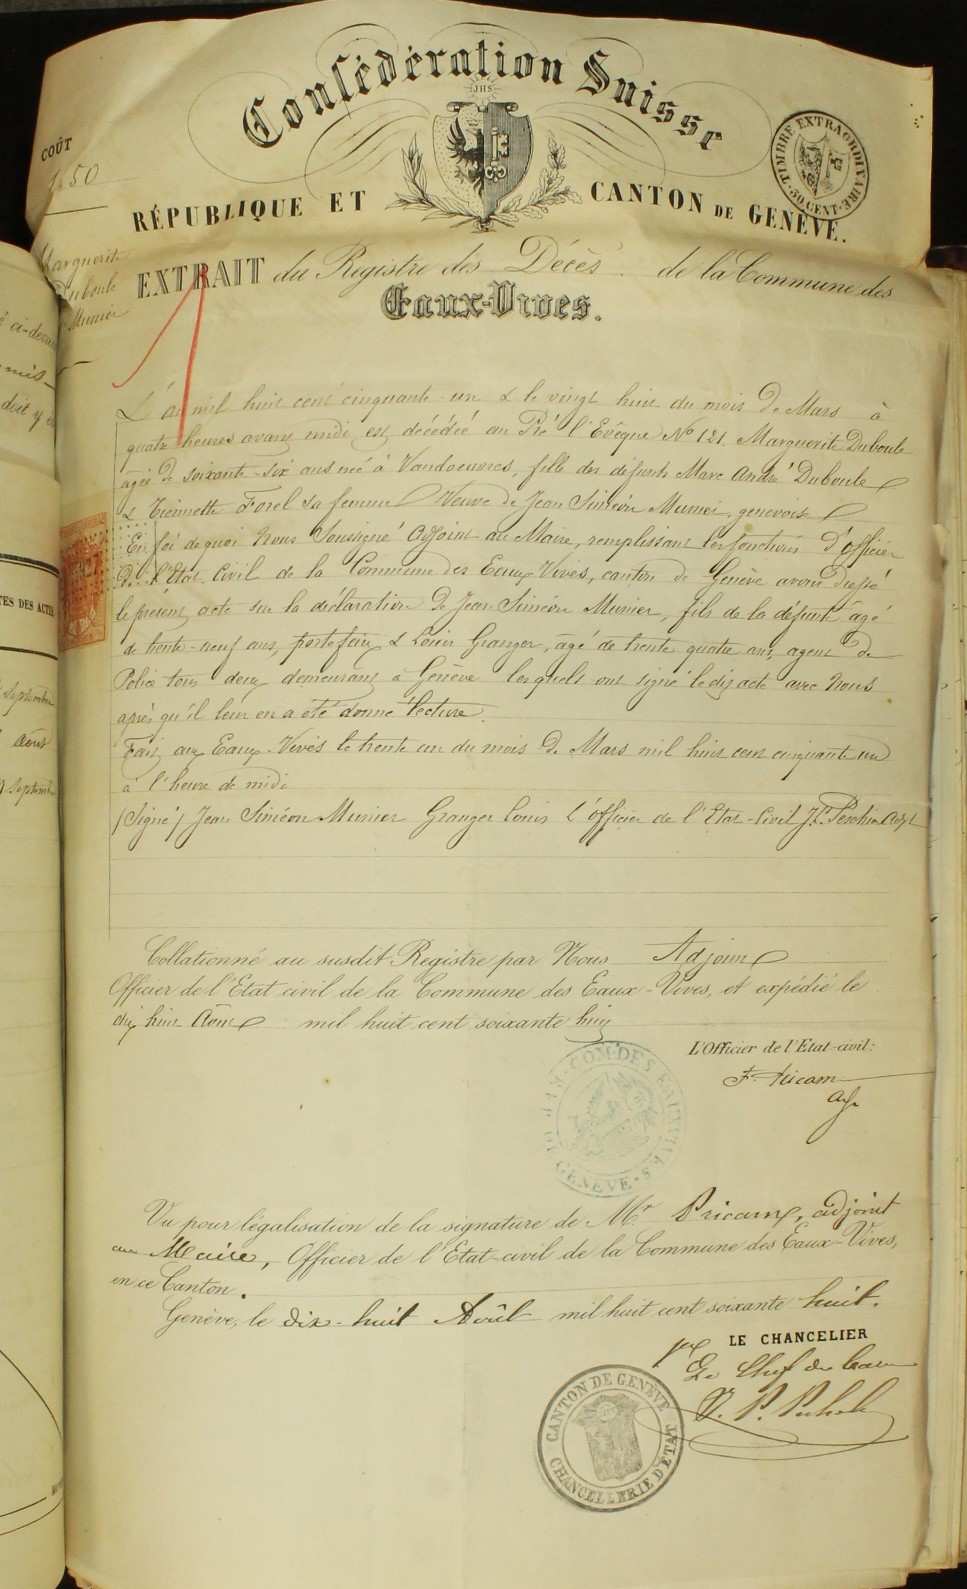 Confédération Suisse
JHS
COÛT
1.50
TIMBRE EXTRAORDINAIRE
50 CENT.
RÉPUBLIQUE ET CANTON DE GENÈVE.
Marguerite
Duboule
Munier
EXTRAIT du Registre des Décès de la Commune des
Eaux-Vives.
L'an mil huit cent cinquante-un & le vingt huit du mois de Mars à
quatre heures avant midi est décédée au Pré l'Evêque No 121, Marguerite Duboule
agée de soixante-six ans née à Vandoeuvres, fille des défunts Marc André Duboule
& Forel sa femme Veuve de Jean Siméon Munier, genevois
En foi de quoi Nous Soussigné Adjoint au Maire, remplissant les fonctions d'officier
de l'Etat Civil de la Commune des Eaux Vives, canton de Genève avons dressé
le présent acte sur la déclaration de Jean Siméon Munier, fils de la défunte âgé
de trente-neuf ans, portefaix & Louis Granger, âgé de trente quatre ans, agent de
Police tous deux demeurant à Genève lesquels ont signé ledit acte avec Nous
après qu'il leur en a été donné lecture.
Fait aux Eaux-Vives le trente un du mois de Mars mil huit cent cinquante un
à l'heure de midi
(Signé) Jean Siméon Munier Granger Louis L'officier de l'Etat-Civil
Collationné au susdit Registre par Nous Adjoint
Officier de l'Etat civil de la Commune des Eaux-Vives, et expédié le
dix huit Août mil huit cent soixante huit
L'Officier de l'Etat-civil:
F. Pricam
adj
COM. DES EAUX-VIVES
GENÈVE
Vu pour légalisation de la signature de Mr Pricam, adjoint
au Maire, Officier de l'Etat-civil de la Commune des Eaux-Vives,
en ce Canton.
Genève, le dix-huit Août mil huit cent soixante huit.
LE CHANCELIER
Le Chef de
CANTON DE GENÈVE
CHANCELLERIE D'ÉTAT
ci-dessus
TES DES ACTES
Septembre
Août
Septembre